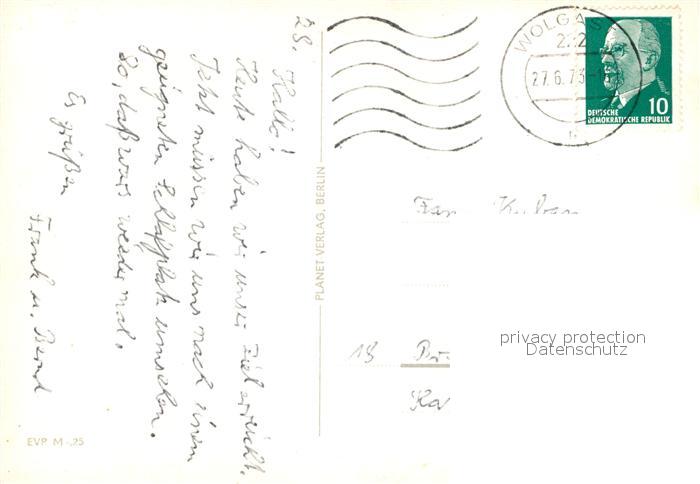 28.
Hallo!
Heute haben wir unser Ziel erreicht.
Jetzt müssen wir uns nach einem
geeigneten Schlafplatz umsehen.
So, daß wars wieder mal.
Es grüßen
Frank u. Bernd
EVP M -,25
PLANET VERLAG, BERLIN
WOLGAST
222
27.6.73
10
DEUTSCHE
DEMOKRATISCHE REPUBLIK
18
privacy protection
Datenschutz